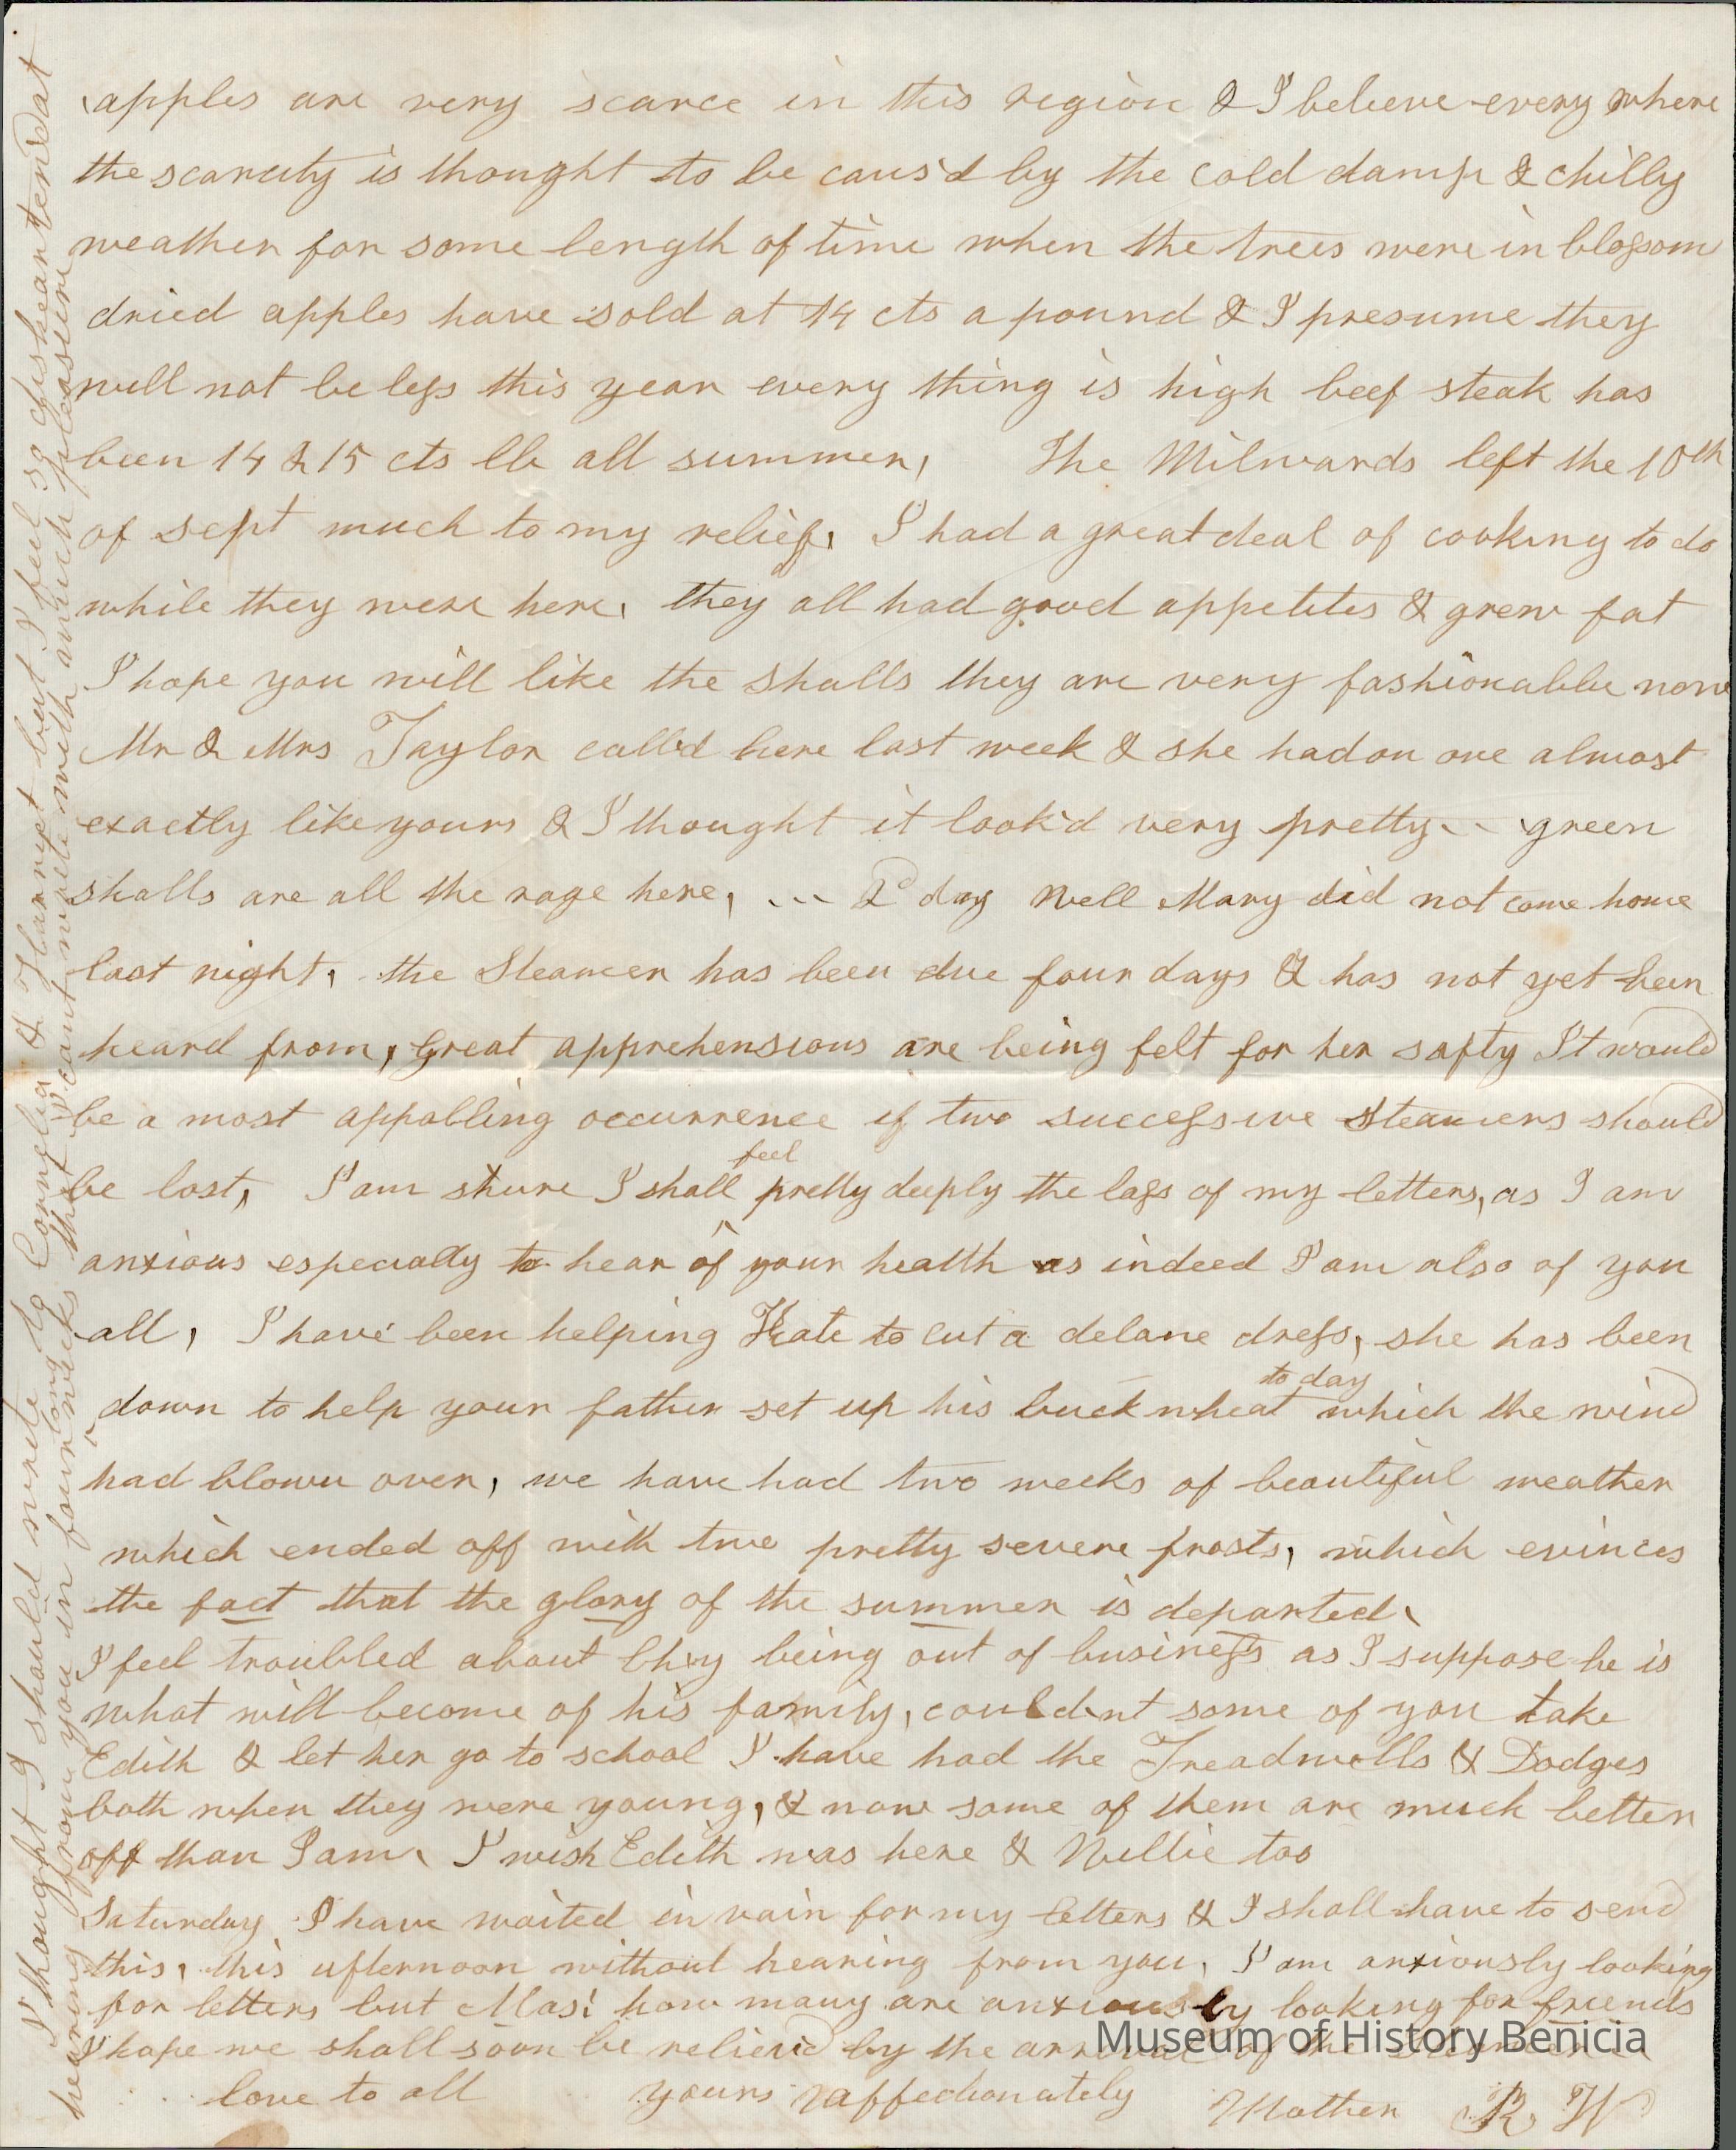 apples are very scarce in this region & I believe every where
the scarcity is thought to be caus'd by the cold damp & chilly
weather for some length of time when the trees were in blossom
dried apples have sold at 14 cts a pound & I presume they
will not be less this year every thing is high beef steak has
been 14 & 15 cts lb all summer, The Milwards left the 10th
of sept much to my relief, I had a great deal of cooking to do
while they were here, they all had good appetites & grew fat
I hope you will like the shalls they are very fashionable now
Mr & Mrs Taylor call'd here last week & she had on one almost
exactly like yours & I thought it look'd very pretty -- green
shalls are all the rage here, --- 2d day Well Mary did not come home
last night, the Steamer has been due four days & has not yet been
heard from, Great apprehensions are being felt for her safty It would
be a most appalling occurrence if two successive steamers should
be lost, I am shure I shall feel pretty deeply the loss of my letters, as I am
anxious especially to hear of your health as indeed I am also of you
all, I have been helping Kate to cut a delane dress, she has been
down to help your father set up his buck wheat to day which the wind
had blown over, we have had two weeks of beautiful weather
which ended off with two pretty severe frosts, which evinces
the fact that the glory of the summer is departed,
I feel troubled about being out of business as I suppose he is
what will become of his family, couldnt some of you take
Edith & let her go to school I have had the Treadwells & Dodges
both when they were young, & now some of them are much better
off than I am, I wish Edith was here & Willie too
Saturday I have waited in vain for my letters & I shall have to send
this, this afternoon without hearing from you, I am anxiously looking
for letters but Alas! how many are anxiously looking for friends
I hope we shall soon be reliev'd by the arrival of the
love to all yours affectionately Mother R, W
I thought I should write to Cornelia & Harriet but I feel so dishearten'd at
hearing from you in four long weeks that I cant write with much pleasure
Museum of History Benicia